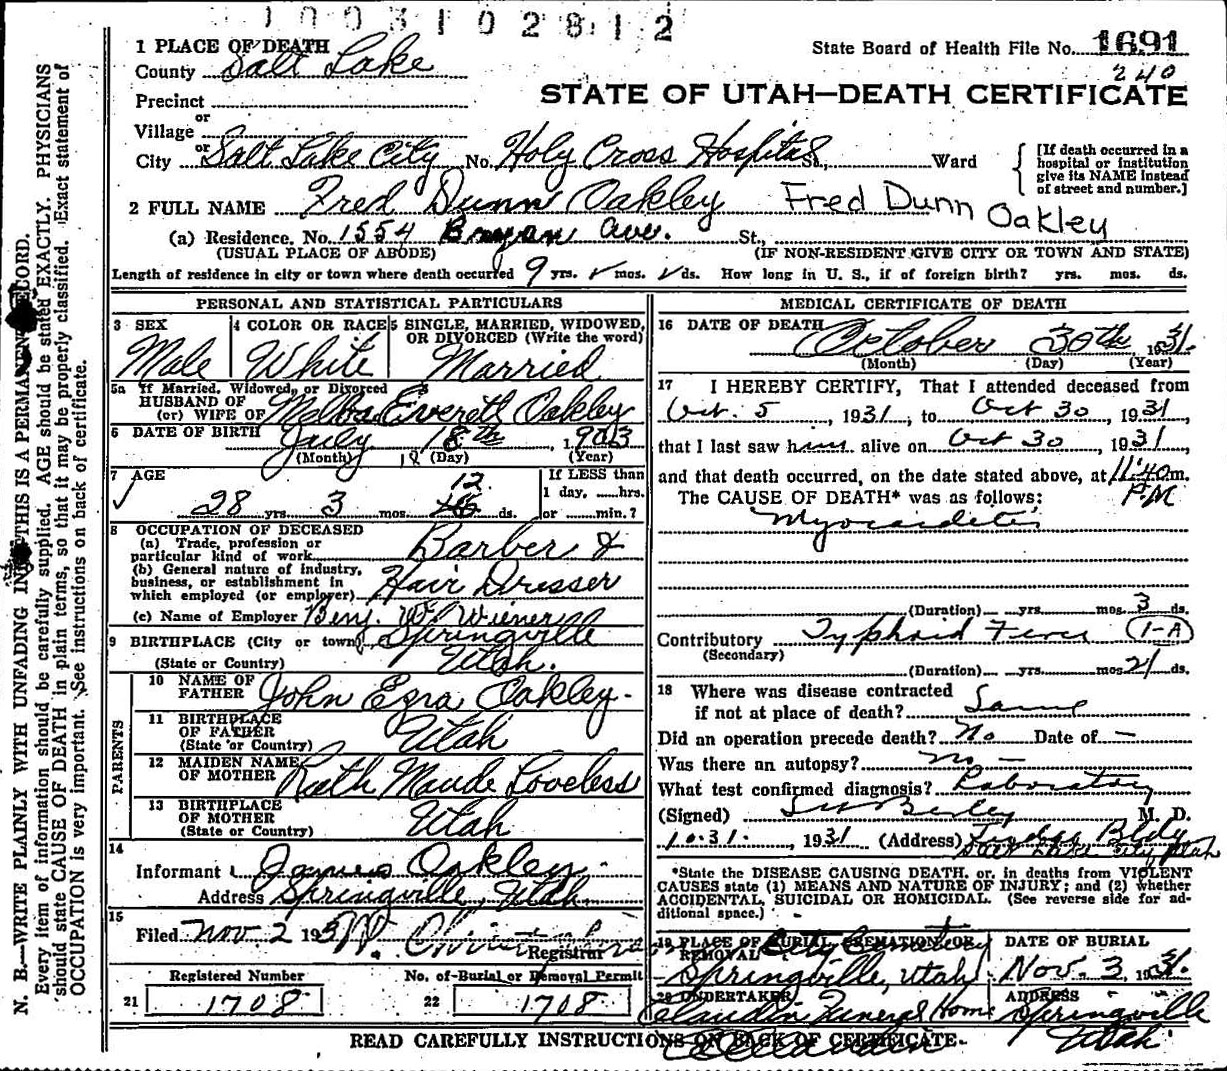 1003102812
1 PLACE OF DEATH
State Board of Health File No. 1691
County Salt Lake
240
Precinct
STATE OF UTAH—DEATH CERTIFICATE
or
Village
or
City Salt Lake City No. Holy Cross Hospital St., Ward
[If death occurred in a
hospital or institution
give its NAME instead
of street and number.]
2 FULL NAME Fred Dunn Oakley Fred Dunn Oakley
(a) Residence. No. 1554 Bryan Ave. St.,
(USUAL PLACE OF ABODE) (IF NON-RESIDENT GIVE CITY OR TOWN AND STATE)
Length of residence in city or town where death occurred 9 yrs. ✓ mos. ✓ ds. How long in U. S., if of foreign birth? yrs. mos. ds.
PERSONAL AND STATISTICAL PARTICULARS
3 SEX
Male
4 COLOR OR RACE
White
5 SINGLE, MARRIED, WIDOWED,
OR DIVORCED (Write the word)
Married
5a If Married, Widowed, or Divorced
HUSBAND OF
(or) WIFE OF Melba Everett Oakley
6 DATE OF BIRTH July 18th, 1903
(Month) 18 (Day) (Year)
7 AGE
28 yrs. 3 mos. 12 ds.
If LESS than
1 day, ......hrs.
or ......min.?
8 OCCUPATION OF DECEASED
(a) Trade, profession or
particular kind of work Barber &
(b) General nature of industry,
business, or establishment in
which employed (or employer) Hair Dresser
(c) Name of Employer Benj. W. Wiener
9 BIRTHPLACE (City or town) Springville
(State or Country) Utah.
PARENTS
10 NAME OF
FATHER John Ezra Oakley
11 BIRTHPLACE
OF FATHER
(State or Country) Utah
12 MAIDEN NAME
OF MOTHER Ruth Maude Loveless
13 BIRTHPLACE
OF MOTHER
(State or Country) Utah
14
Informant James Oakley
Address Springville, Utah
15
Filed Nov 2 193
Registrar
Registered Number
21 1708
No. of Burial or Removal Permit
22 1708
MEDICAL CERTIFICATE OF DEATH
16 DATE OF DEATH
October 30th 1931.
(Month) (Day) (Year)
17 I HEREBY CERTIFY, That I attended deceased from
Oct. 5, 1931, to Oct 30, 1931
that I last saw him alive on Oct 30, 1931,
and that death occurred, on the date stated above, at 11:40 m.
PM
The CAUSE OF DEATH* was as follows:
Myocardetis
(Duration) yrs. mos. 3 ds.
Contributory Typhoid Fever 1-A
(Secondary)
(Duration) yrs. mos. 21 ds.
18 Where was disease contracted
if not at place of death? Same
Did an operation precede death? No Date of —
Was there an autopsy? no —
What test confirmed diagnosis? Laboratory
(Signed) M. D.
10.31., 1931 (Address) Bldg
Salt Lake City Utah
*State the DISEASE CAUSING DEATH, or, in deaths from VIOLENT
CAUSES state (1) MEANS AND NATURE OF INJURY; and (2) whether
ACCIDENTAL, SUICIDAL OR HOMICIDAL. (See reverse side for ad-
ditional space.)
19 PLACE OF BURIAL, CREMATION, OR
REMOVAL City Cemetery
Springville, Utah
DATE OF BURIAL
Nov. 3, 1931.
20 UNDERTAKER
Claudin Funeral Home
ADDRESS
Springville
Utah
READ CAREFULLY INSTRUCTIONS ON BACK OF CERTIFICATE
N. B.—WRITE PLAINLY WITH UNFADING INK—THIS IS A PERMANENT RECORD.
Every item of information should be carefully supplied. AGE should be stated EXACTLY. PHYSICIANS
should state CAUSE OF DEATH in plain terms, so that it may be properly classified. Exact statement of
OCCUPATION is very important. See instructions on back of certificate.